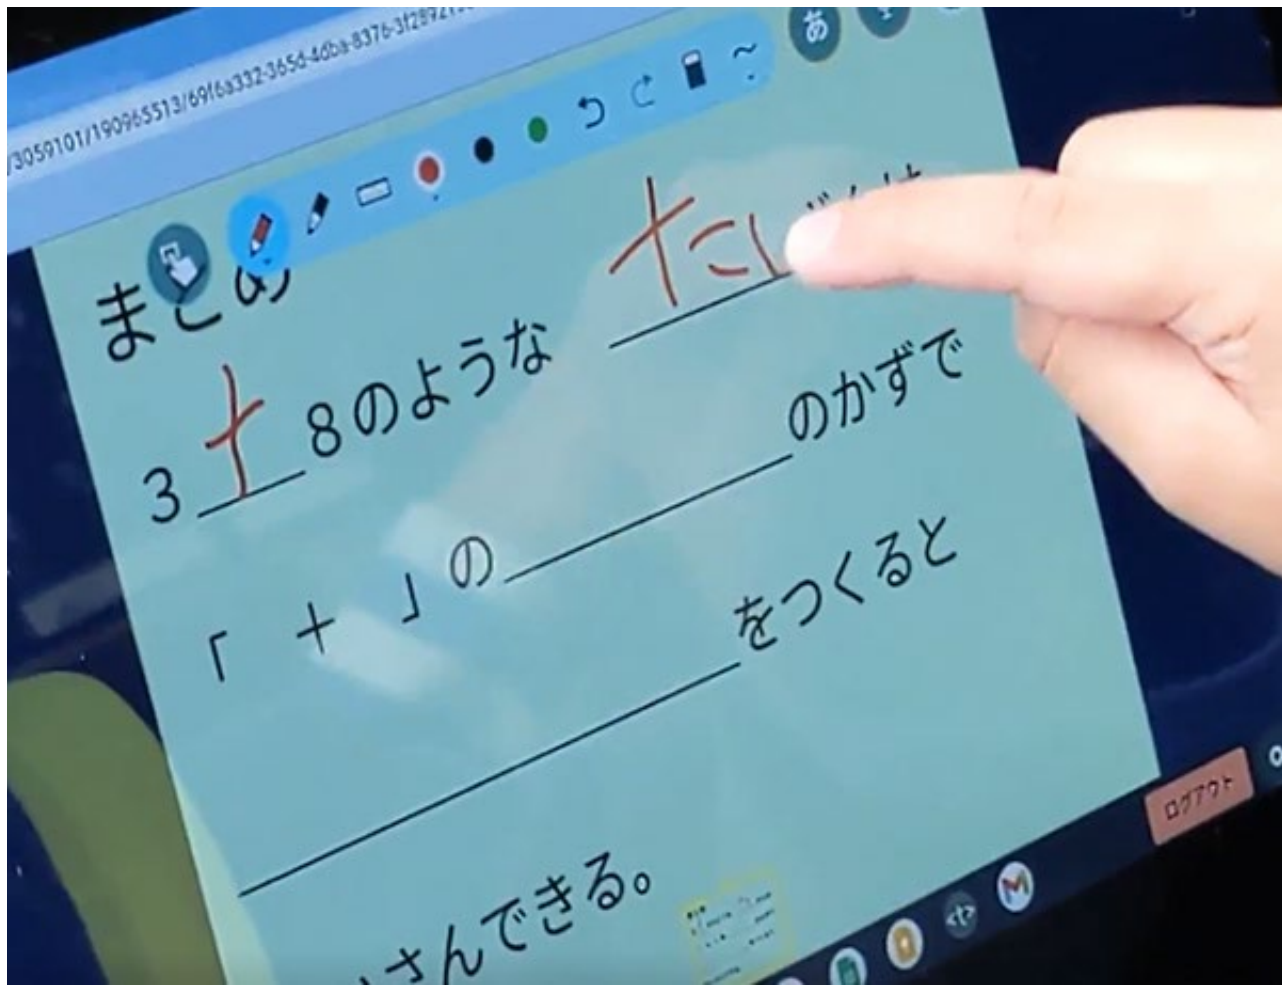 /3059101/190965513/69f6a332-365d-4dba-8376-3f2892
あ
まとめ
3 + 8のような たし
「 + 」の のかずで
をつくると
さんできる。
ログアウト